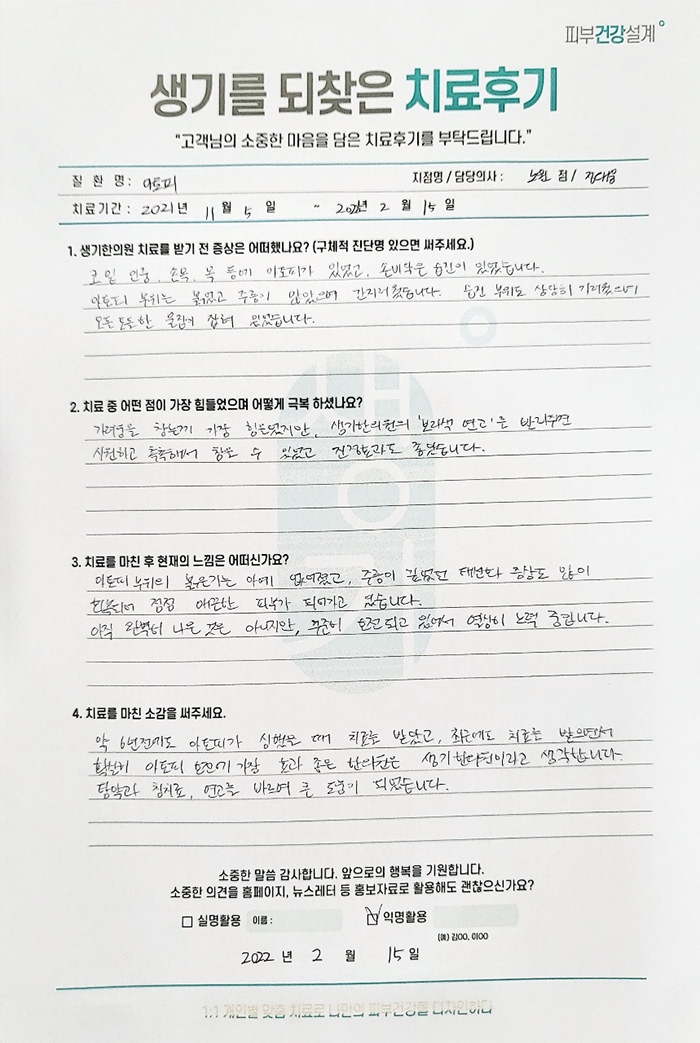 피부건강설계
생기를 되찾은 치료후기
"고객님의 소중한 마음을 담은 치료후기를 부탁드립니다."
질 환 명 : 아토피 지점명 / 담당의사 : 노원 점 /
치료기간 : 2021년 11월 5일 ~ 2022년 2월 15일
1. 생기한의원 치료를 받기 전 증상은 어떠했나요? (구체적 진단명 있으면 써주세요.)
코 밑 인중, 손목, 목 등에 아토피가 있었고, 손바닥은 습진이 있었습니다.
아토피 부위는 붉었고 주름이 많았으며 간지러웠습니다. 습진 부위도 상당히 가려웠으며
오돌토돌한 물집이 잡혀 있었습니다.
2. 치료 중 어떤 점이 가장 힘들었으며 어떻게 극복 하셨나요?
가려움을 참는게 가장 힘들었지만, 생기한의원의 '보라색 연고'를 발라주면
시원하고 촉촉해서 참을 수 있었고 진정효과도 좋았습니다.
3. 치료를 마친 후 현재의 느낌은 어떠신가요?
아토피 부위의 붉은기는 아예 없어졌고, 주름이 깊었던 태선화 증상도 많이
회복되어 점점 매끈한 피부가 되어가고 있습니다.
아직 완벽히 나은 것은 아니지만, 꾸준히 호전되고 있어서 열심히 노력 중입니다.
4. 치료를 마친 소감을 써주세요.
약 6년전에도 아토피가 심했을 때 치료를 받았고, 최근에도 치료를 받으면서
확실히 아토피 호전에 가장 효과 좋은 한의원은 생기한의원이라고 생각합니다.
탕약과 침치료, 연고를 바르며 큰 도움이 되었습니다.
소중한 말씀 감사합니다. 앞으로의 행복을 기원합니다.
소중한 의견을 홈페이지, 뉴스레터 등 홍보자료로 활용해도 괜찮으신가요?
실명활용 이름 : 익명활용
(예) 김OO, 이OO
2022 년 2 월 15 일
1:1 개인별 맞춤 치료로 나만의 피부건강을 디자인하다